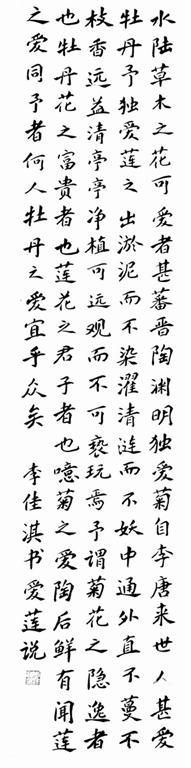 水陆草木之花可爱者甚蕃晋陶渊明独爱菊自李唐来世人甚爱
牡丹予独爱莲之出淤泥而不染濯清涟而不妖中通外直不蔓不
枝香远益清亭亭净植可远观而不可亵玩焉予谓菊花之隐逸者
也牡丹花之富贵者也莲花之君子者也噫菊之爱陶后鲜有闻莲
之爱同予者何人牡丹之爱宜乎众矣 李佳淇书爱莲说